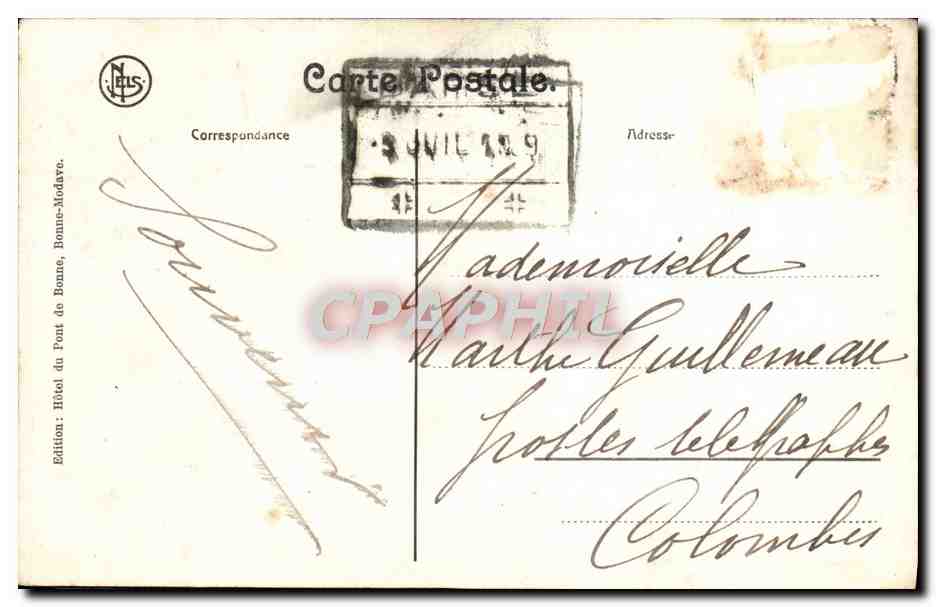 NELS
Carte Postale.
Correspondance
Adresse
JUIL
Edition: Hôtel du Pont de Bonne, Bonne-Modave.
Souvenir
CPAPHIL
Mademoiselle
Marthe Guillemeau
postes telegraphes
Colombes